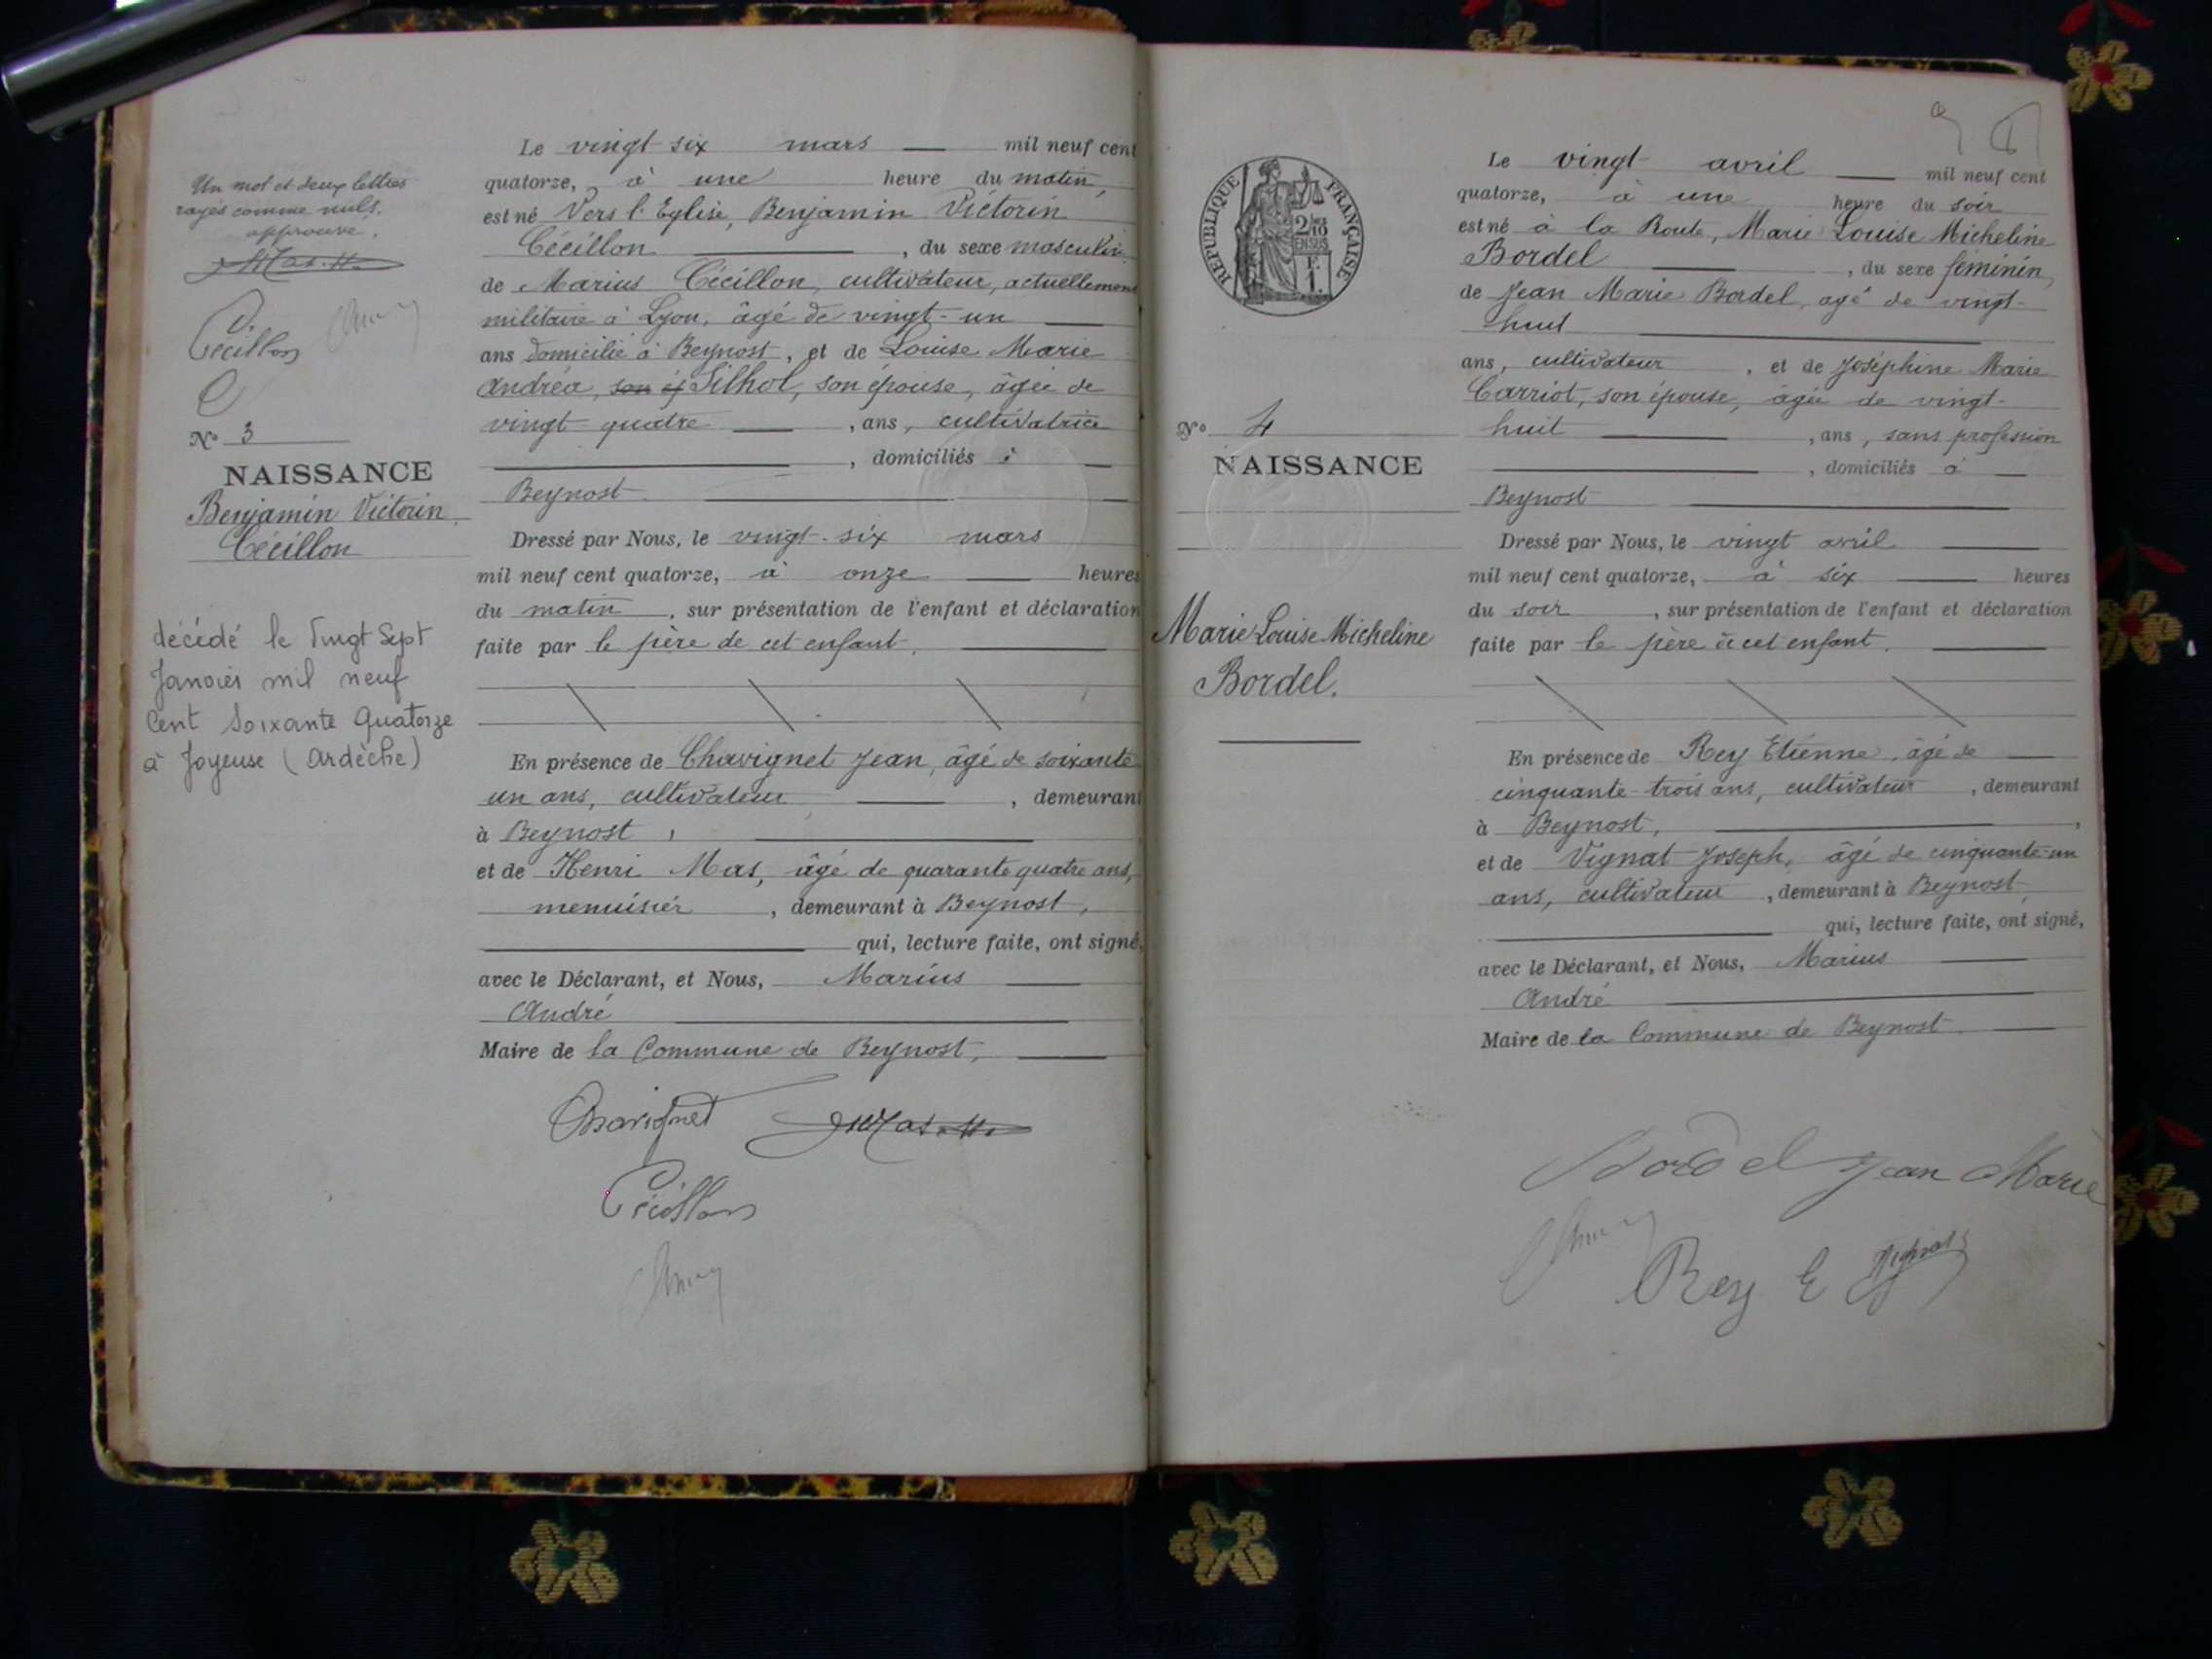 Un mot et deux lettres
rayés comme nuls.
approuvé.
Cécillon
N° 3
NAISSANCE
Benjamin Victorin
Cécillon
décédé le Vingt Sept
Janvier mil neuf
Cent Soixante Quatorze
à Joyeuse (Ardèche)
Le vingt-six mars mil neuf cent
quatorze, à une heure du matin,
est né Vers l'Eglise, Benjamin Victorin
Cécillon, du sexe masculin
de Marius Cécillon, cultivateur, actuellement
militaire à Lyon, âgé de vingt-un
ans domicilié à Beynost, et de Louise Marie
Andréa, son é Silhol, son épouse, âgée de
vingt-quatre, ans, cultivatrice
, domiciliés à
Beynost
Dressé par Nous, le vingt-six mars
mil neuf cent quatorze, à onze heures
du matin, sur présentation de l'enfant et déclaration
faite par le père de cet enfant.
En présence de Chavignet Jean, âgé de soixante
un ans, cultivateur, demeurant
à Beynost,
et de Henri Mas, âgé de quarante quatre ans,
menuisier, demeurant à Beynost,
qui, lecture faite, ont signé,
avec le Déclarant, et Nous, Marius
André
Maire de la Commune de Beynost,
Chavignet
Cécillon
RÉPUBLIQUE FRANÇAISE
2/10
EN SUS
F.
1.
N° 4
NAISSANCE
Marie Louise Micheline
Bordel.
Le vingt avril mil neuf cent
quatorze, à une heure du soir
est né à la Route, Marie Louise Micheline
Bordel, du sexe féminin,
de Jean Marie Bordel, âgé de vingt-
huit
ans, cultivateur, et de Joséphine Marie
Carriot, son épouse, âgée de vingt-
huit, ans, sans profession
, domiciliés à
Beynost
Dressé par Nous, le vingt avril
mil neuf cent quatorze, à six heures
du soir, sur présentation de l'enfant et déclaration
faite par le père de cet enfant.
En présence de Rey Etienne, âgé de
cinquante-trois ans, cultivateur, demeurant
à Beynost,
et de Vignat Joseph, âgé de cinquante-un
ans, cultivateur, demeurant à Beynost
qui, lecture faite, ont signé,
avec le Déclarant, et Nous, Marius
André
Maire de la Commune de Beynost
Bordel Jean Marie
Rey E Vignat